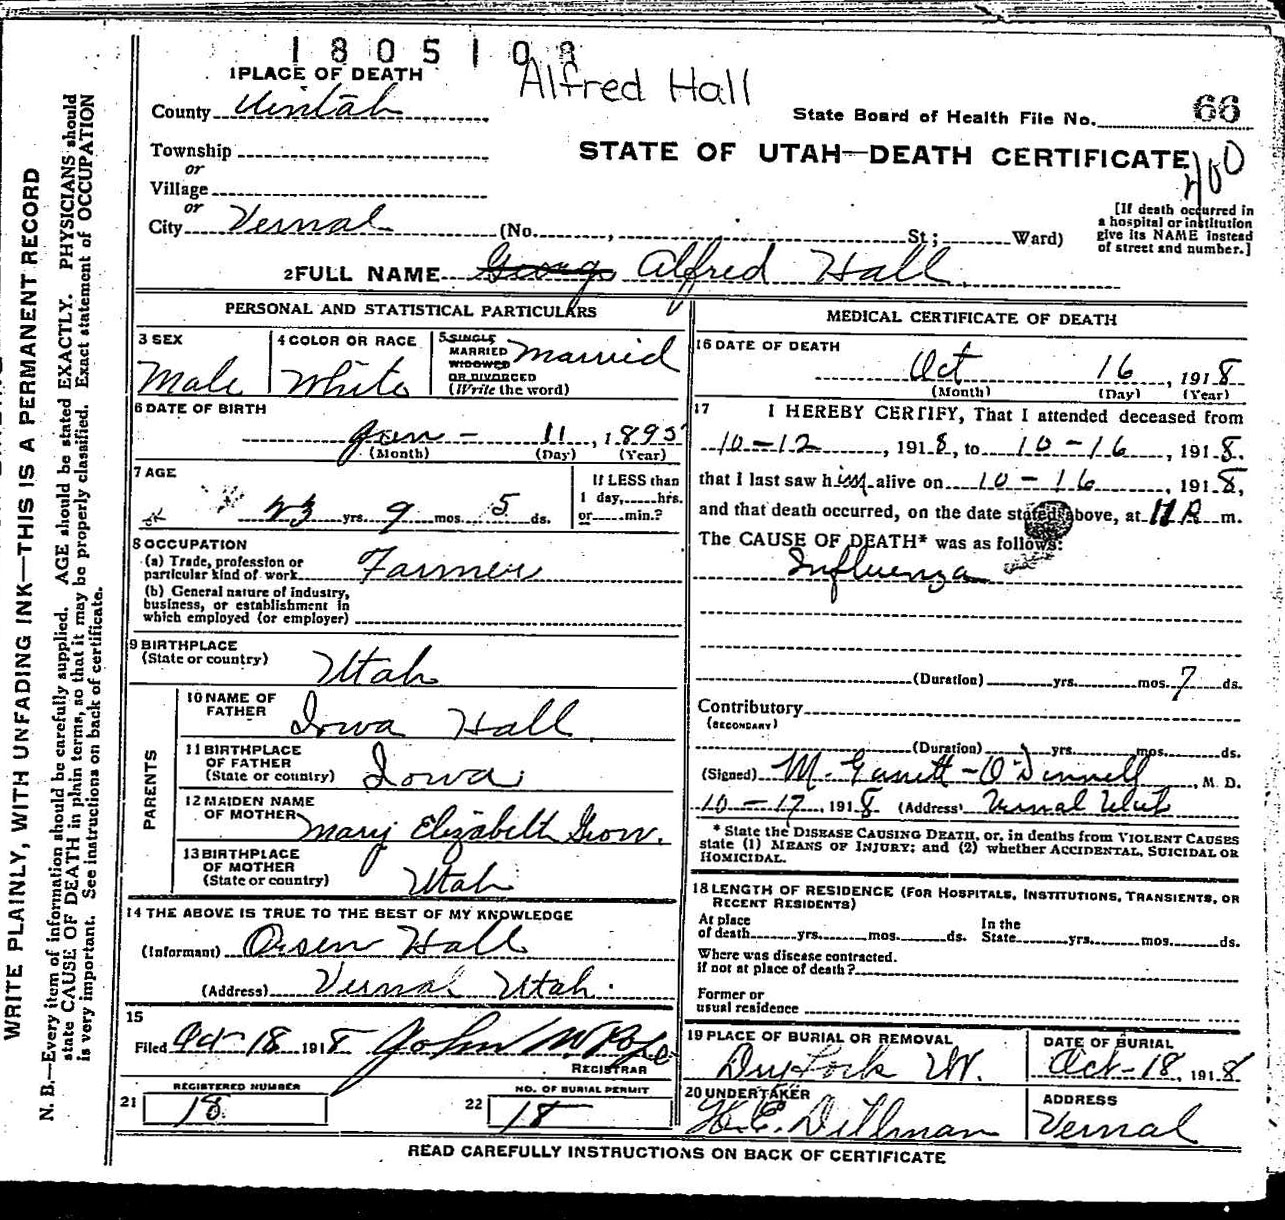 1805108
Alfred Hall
1 PLACE OF DEATH
County Uintah
State Board of Health File No. 66
Township
or
STATE OF UTAH—DEATH CERTIFICATE
Village
or
City Vernal (No. , St; Ward)
[If death occurred in
a hospital or institution
give its NAME instead
of street and number.]
2 FULL NAME George Alfred Hall
PERSONAL AND STATISTICAL PARTICULARS
3 SEX
Male
4 COLOR OR RACE
White
5 SINGLE
MARRIED
WIDOWED
OR DIVORCED
(Write the word)
Married
6 DATE OF BIRTH
Jan - 11, 1895
(Month) (Day) (Year)
7 AGE
23 yrs. 9 mos. 5 ds.
If LESS than
1 day, hrs.
or min.?
8 OCCUPATION
(a) Trade, profession or
particular kind of work Farmer
(b) General nature of industry,
business, or establishment in
which employed (or employer)
9 BIRTHPLACE
(State or country) Utah
PARENTS
10 NAME OF
FATHER Iowa Hall
11 BIRTHPLACE
OF FATHER
(State or country) Iowa
12 MAIDEN NAME
OF MOTHER Mary Elizabeth Grow.
13 BIRTHPLACE
OF MOTHER
(State or country) Utah
14 THE ABOVE IS TRUE TO THE BEST OF MY KNOWLEDGE
(Informant) Orsen Hall
(Address) Vernal Utah.
15
Filed Oct-18 1918 John N. Pope
REGISTRAR
REGISTERED NUMBER
21 18
NO. OF BURIAL PERMIT
22 18
MEDICAL CERTIFICATE OF DEATH
16 DATE OF DEATH
Oct 16, 1918
(Month) (Day) (Year)
17 I HEREBY CERTIFY, That I attended deceased from
10-12, 1918, to 10-16, 1918.
that I last saw him alive on 10-16, 1918,
and that death occurred, on the date stated above, at 11 m.
The CAUSE OF DEATH* was as follows:
Influenza
(Duration) yrs. mos. 7 ds.
Contributory
(SECONDARY)
(Duration) yrs. mos. ds.
(Signed) M. Garrett-O'Donnell, M. D.
10-17, 1918 (Address) Vernal Utah
* State the DISEASE CAUSING DEATH, or, in deaths from VIOLENT CAUSES
state (1) MEANS OF INJURY; and (2) whether ACCIDENTAL, SUICIDAL OR
HOMICIDAL.
18 LENGTH OF RESIDENCE (FOR HOSPITALS, INSTITUTIONS, TRANSIENTS, OR
RECENT RESIDENTS)
At place
of death yrs. mos. ds.
In the
State yrs. mos. ds.
Where was disease contracted.
if not at place of death?
Former or
usual residence
19 PLACE OF BURIAL OR REMOVAL
Dry Fork Ut.
DATE OF BURIAL
Oct-18, 1918
20 UNDERTAKER
ADDRESS
Dillman
Vernal
READ CAREFULLY INSTRUCTIONS ON BACK OF CERTIFICATE
WRITE PLAINLY, WITH UNFADING INK—THIS IS A PERMANENT RECORD
N. B.—Every item of information should be carefully supplied. AGE should be stated EXACTLY. PHYSICIANS should
state CAUSE OF DEATH in plain terms, so that it may be properly classified. Exact statement of OCCUPATION
is very important. See instructions on back of certificate.